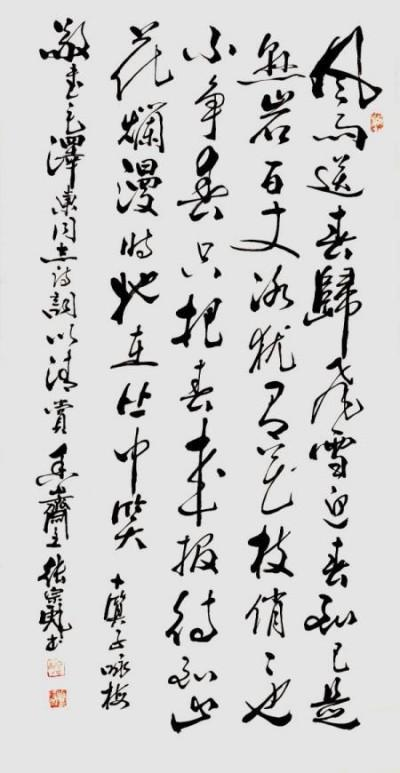 风雨送春歸飛雪迎春到已是
悬岩百丈冰猶有花枝俏〻也
不争春只把春来报待到山
花爛漫時她在丛中笑 卜算子咏梅
敬書毛澤東同志诗詞以清賞 齋主 張宗書